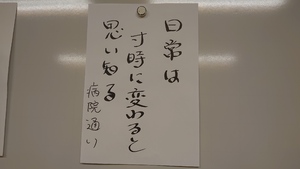 日常は
寸時に変わると
思い知る
病院通い